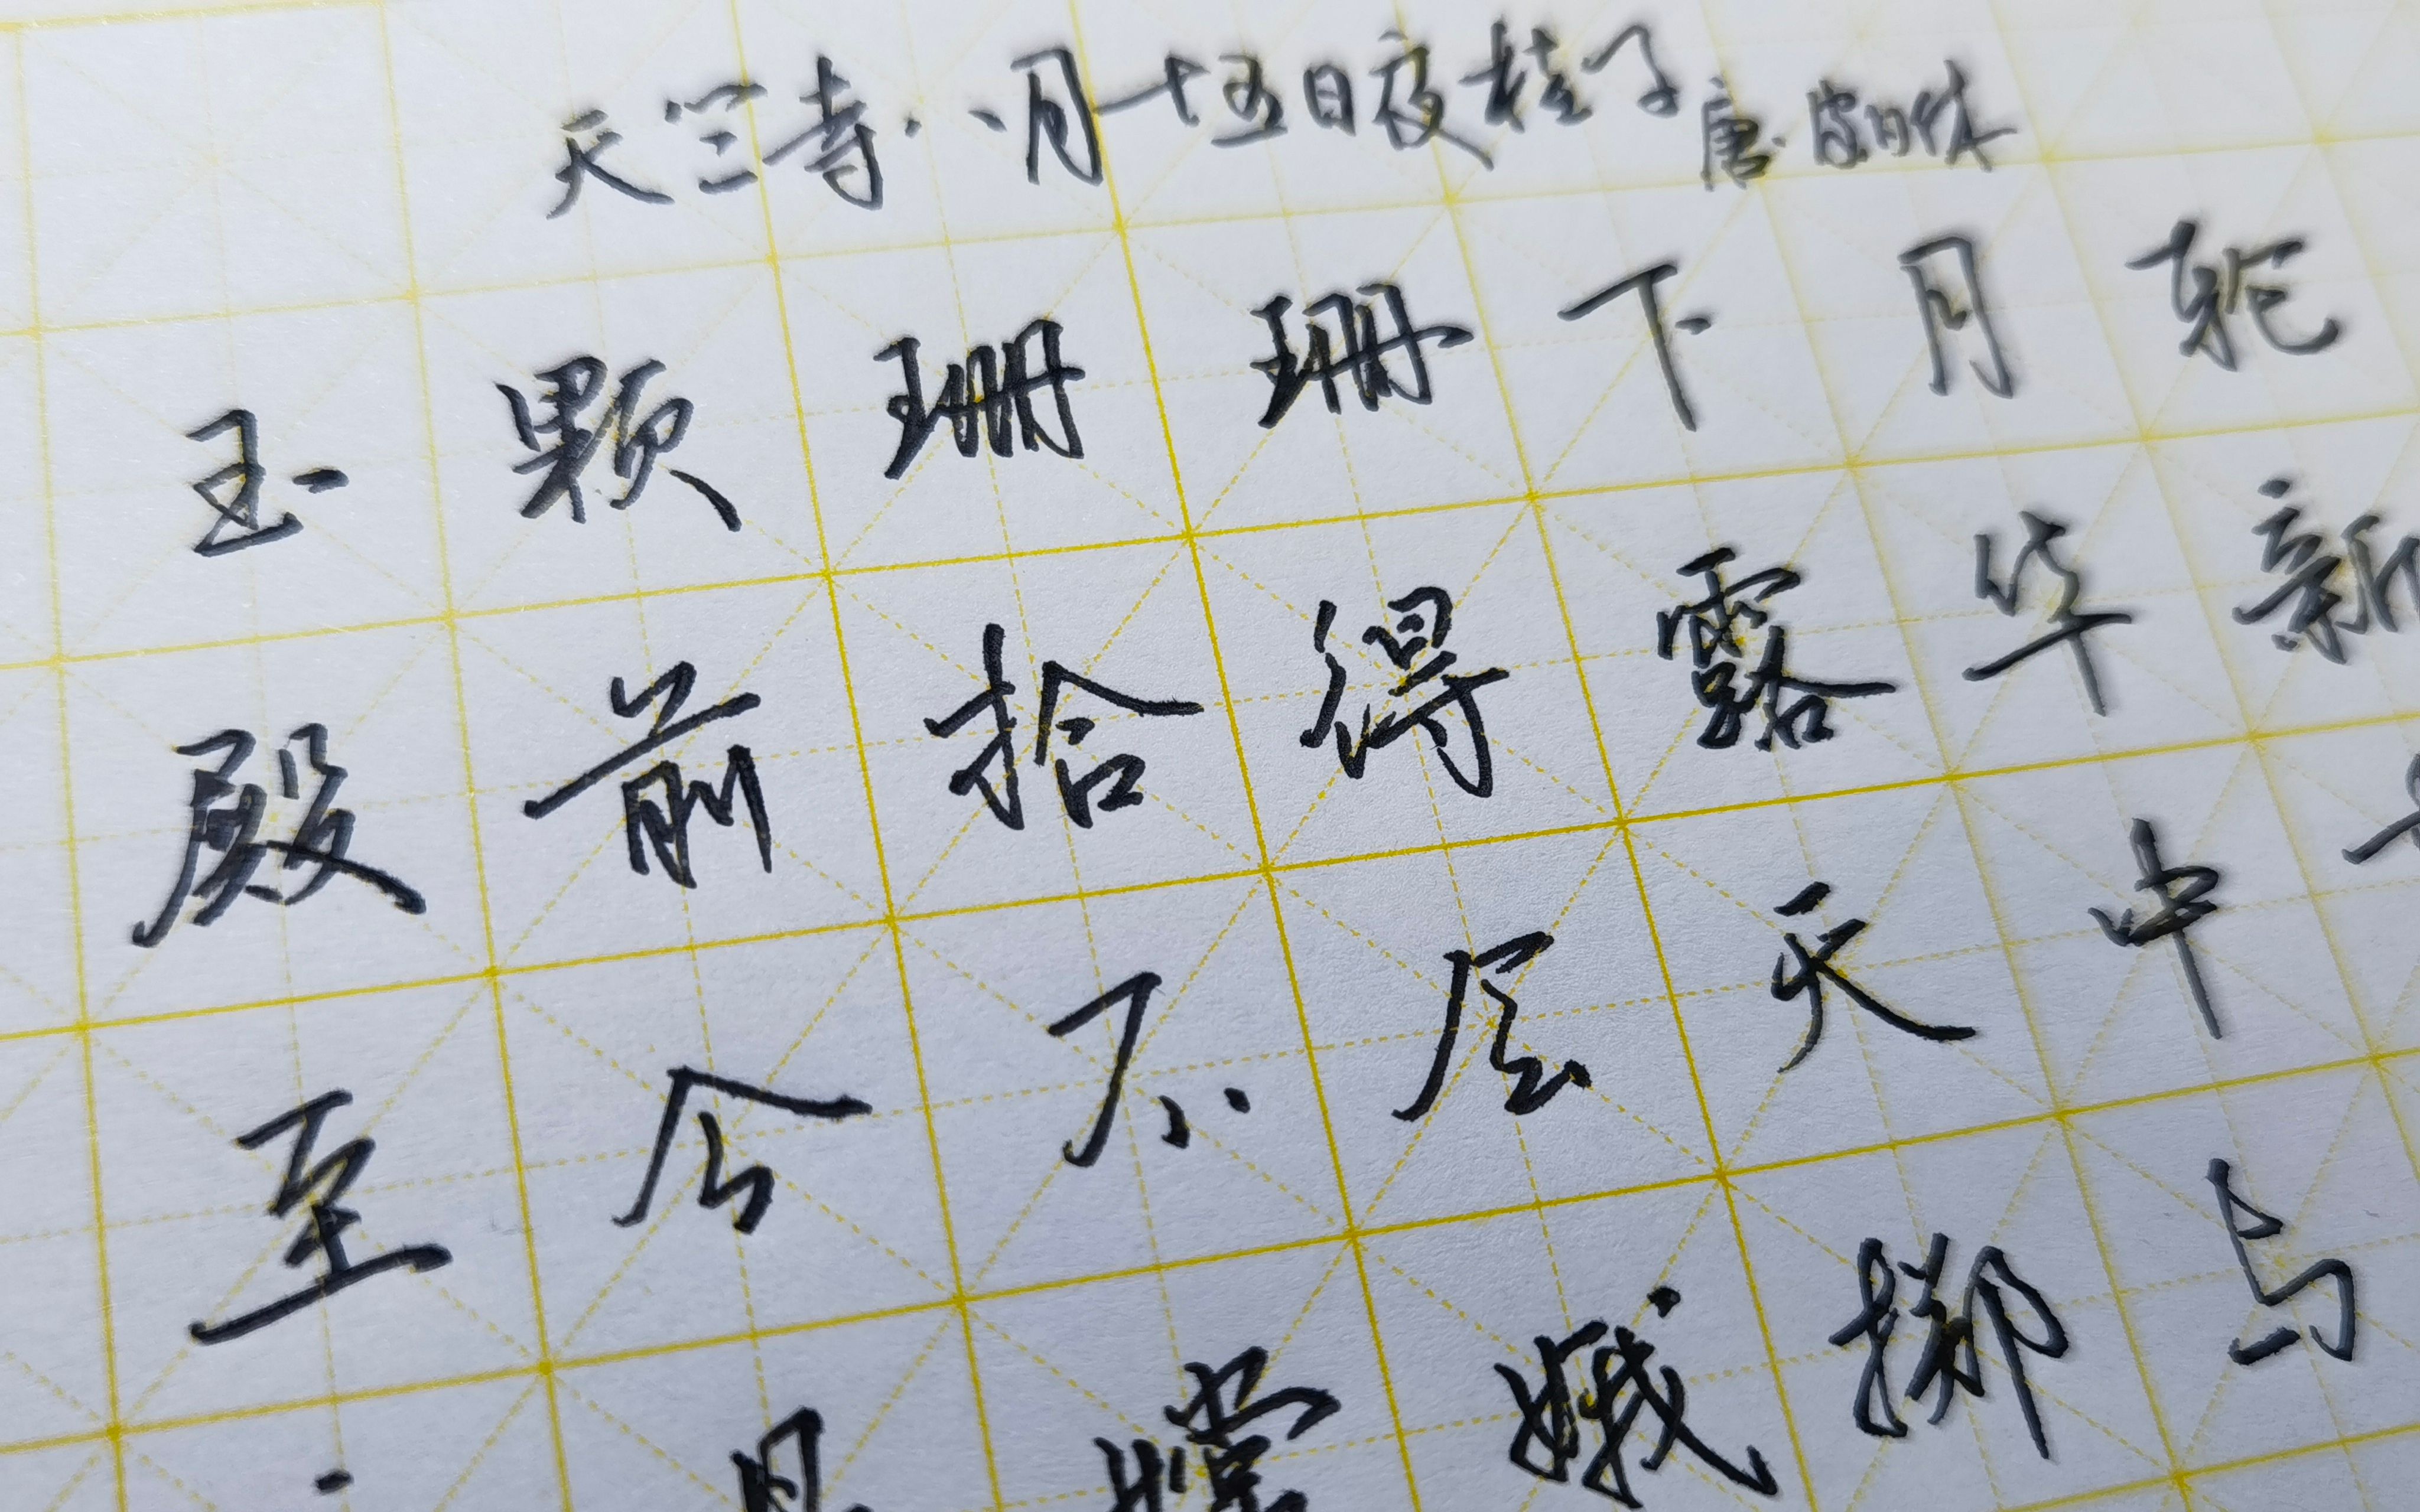 天竺寺八月十五日夜桂子 唐·皮日休
玉颗珊珊下月轮
殿前拾得露华新
至今不层天中
嫦娥掷与